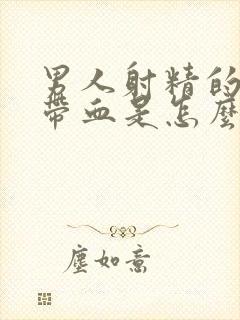 男人射精的
带血是怎麼
塵如意